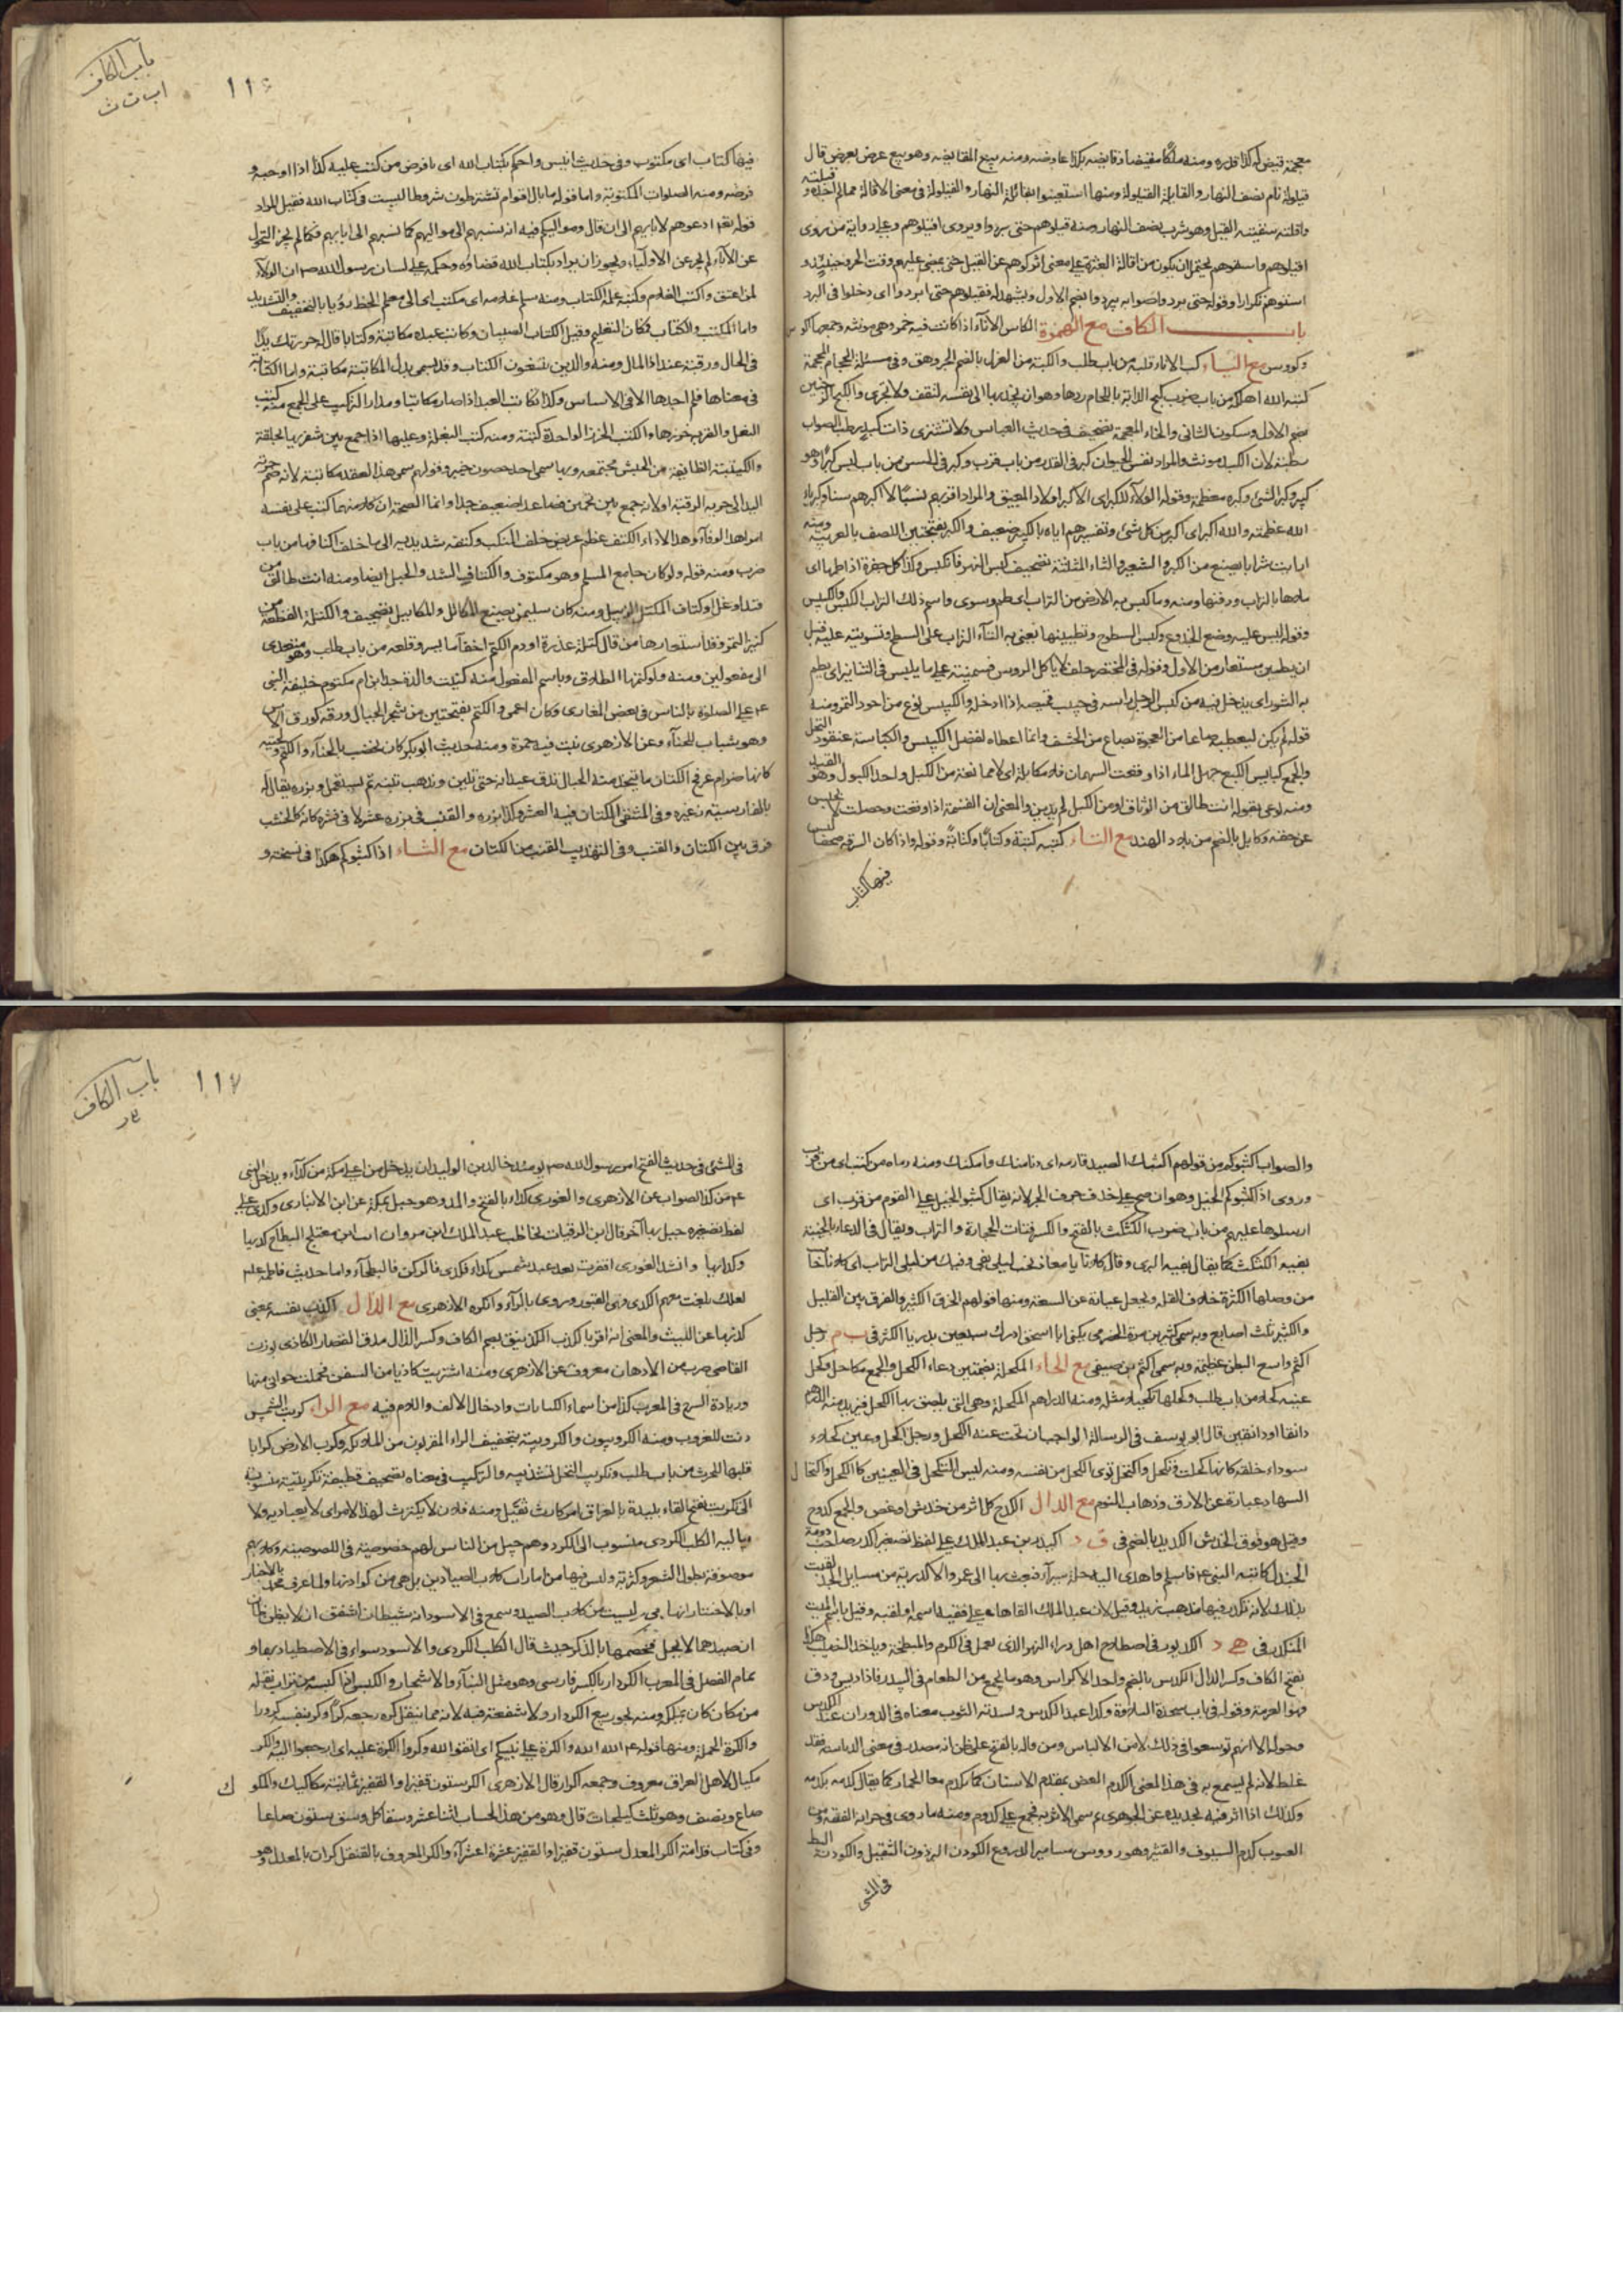 معجمة قيض له كذا قدره ومنه ملكا مقيضا وقايضه بكذا عاوضه ومنه بيع المقايضة وهو بيع عرض بعرض قال
قيلولة نام نصف النهار والقايلة القيلولة ومنها استعينوا بقائلة النهار والقيلولة في معنى الاقالة مما لم اجده و
واقلته سقيته القيل وهو شرب نصف النهار ومنه قيلوهم حتى يبردوا ويروى اقيلوهم وعليه رواية من روى
اقيلوهم واسقوهم يحتمل ان يكون من اقالة العثرة على معنى اتركوهم عن القتل حتى يمضى عليهم وقت الحر وحينئذ و
اسقوهم تكرارا وقوله حتى يبردوا صوابه يبردوا بضم الاول ويشهد له فقيلوهم حتى ابردوا اى دخلوا في البرد
باب الكاف مع الهمزة الكاس الاناء اذا كانت فيه خمر وهى مونثة وجمعها اكوس
وكووس مع الباء كب الاناء قلبه من باب طلب والكبة من الغزل بالضم الجروهق وفي مسئلة المحجام المحجمة
كبته الله اهلكه من باب ضرب كبح الدابة باللجام ردها وهو ان يجذبها الى نفسه لتقف ولا تجرى
بضم الاول وسكون الثانى والخاء المعجمة تصحيف في حديث العباس ولا تشترى ذات كبد رطب الصواب
رطبة لان الكبد مونث والمراد نفس الحيوان كبر في القدر من باب قرب وكبر في السن من باب لبس كبرا وهو
كبير وكبر الشئ وكبره معظمه وقوله الولاء للكبر اى لاكبر اولاد المعتق والمراد اقربهم نسبا لا اكبرهم سنا وكبرياء
الله عظمته والله اكبر اى اكبر من كل شئ وتفسيرهم اياه بالكبير ضعيف والكبر بفتحتين اللصف بالعربية ومنه
ارايت شرابا يصنع من الكبر والشعير والثاء المثلثة تصحيف كبس النهر فانكبس وكذا كل حفرة اذا طمها اى
ملاها بالتراب ودفنها ومنه وما كبس به الارض من التراب اى طم وسوى واسم ذلك التراب الكبس
وقوله ليس عليه وضع الجذوع وكبس السطوح وتطيينها يعنى به القاء التراب على السطح وتسويته عليه قبل
ان يطين مستعار من الاول وقوله في المختصر حلف لا ياكل الروس فيمينه على ما يكبس في التنانير اى يطم
به التنور اى يدخل فيه من كبس الرجل راسه في جيب قميصه اذا ادخله والكبيس نوع من اجود التمر ومنه
قوله لم يكن ليعطيه صاعا من العجوة بصاع من الحشف وانما اعطاه لفضل الكبيس والكباسة عنقود النخل
والجمع كبايس الكبع جمل الماء اذا وقعت السهمان فلا مكابلة اى لا ممانعة من الكبل واحد الكبول وهو القيد
ومنه لو عنى بقوله انت طالق من الوثاق او من الكبل لم يدين والمعنى ان القسمة اذا وقعت وحصلت لا يحبس
عن حقه وكابل بالضم من بلاد الهند مع التاء كتبه كتبة وكتابا وكتابة وقوله واذا كان السرقة صحفا ليس
فيها كتاب
باب الكاف
اب ت ث
١١٦
فيها كتاب اى مكتوب وفي حديث انيس واحكم بكتاب الله اى بما فرض من كتب عليه كذا اذا اوجبه و
فرضه ومنه الصلوات المكتوبة واما قوله ما بال اقوام تشترطون شروطا ليست في كتاب الله فقيل المراد
قوله تعالى ادعوهم لابايهم الى ان قال ومواليكم فيه انه نسبهم الى مواليهم كما نسبهم الى ابايهم فكما لم يجز التحول
عن الاباء لم يجز عن الاولياء ويجوز ان يراد بكتاب الله قضاؤه وحكمه على لسان رسول الله ص ان الولاء
لمن اعتق واكتب الغلام وكتبه علمه الكتاب ومنه سلم غلامه اى مكتب اى الى معلم الخط روى بالتخفيف والتشديد
واما المكتب والكتاب فمكان التعليم وقيل الكتاب الصبيان وكاتب عبده مكاتبة وكتابا قال له حررتك يدا
في الحال ورقبة عند اداء المال ومنه والذين يبتغون الكتاب وقد يسمى بدل المكاتبة مكاتبة واما الكتابة
في معناها فلم اجدها الا في الاساس وكذا تكاتب العبد اذا صار مكاتبا ومدار التركيب على الجمع منه كتب
النعل والقربة خرزها والكتب الخرز الواحدة كتبة ومنه كتب البغلة وعليها اذا جمع بين شفريها بحلقة
والكتيبة الطايفة من الجيش مجتمعة وبها سمى احد حصون خيبر وقولهم سمى هذا العقد مكاتبة لانه ضم حرية
اليد الى حرية الرقبة او لانه جمع بين نجمين فصاعدا ضعيف جدا وانما الصحة ان كلا منهما كتب على نفسه
امرا هذا الوفاء وهذا الاداء الكتف عظم عريض خلف المنكب وكتفه شد يديه الى ما خلف اكتافه من باب
ضرب ومنه قوله ولو كان جامع المسلم وهو مكتوف والكتاف الشد والحبل ايضا ومنه انت طالق من
قيد او غل او كتاف المكتل الزبيل ومنه كان سليمن يصنع المكاتل والمكابيل تصحيف والكتلة القطعة من
كنيز التمر وقد استعارها من قال كتلة عذرة او دم الكتم اخفاء ما يسر وفعله من باب طلب وهو متعدى
الى مفعولين ومنه ولو كتمها الطلاق وباسم المفعول منه كنيت والدة جد ابن ام مكتوم خليفة النبي
ع م على الصلوة بالناس في بعض المغازى وكان اعمى والكتم بفتحتين من شجر الجبال ورقه كورق الاس
وهو شباب للحناء وعن الازهرى نبت فيه حمرة ومنه حديث ابو بكر كان يخضب بالحناء والكتم ولحيته
كانها ضرام عرفج الكتان ما يتخذ منه الحبال تدق عيدانه حتى تلين ويذهب تبنه ثم يستعمل وبزره يقال له
بالفارسية زغيره وفي المنتقى الكتان فيه العشر وكذا بزره والقنب في بزره عشر لا في قشره كانه كالخشب
فرق بين الكتان والقنب وفي التهذيب القنب من الكتان مع الثاء اذا كثبوكم هكذا في نسخته و
والصواب كثبوكم من قولهم اكثبك الصيد فارمه اى دنا منك وامكنك ومنه رماه من كثب اى من قرب
وروى اذا كثبوكم الخيل وهو ان صح على حذف حرف الجر لانه يقال كثبوا الخيل على القوم من قرب اى
ارسلوها عليهم من باب ضرب الكثكث بالفتح والكسر فتات الحجارة والتراب ويقال في الدعاء بالخيبة
بفيه الكثكث كما يقال بفيه البرى
من وصلها الكثرة خلاف القلة وتجعل عبارة عن السعة ومنها قولهم الخرق الكثير والفرق بين القليل
والكثير ثلث اصابع وبه سمى كثير بن مرة الحضرمى يكنى ابا اسحق ادرك سبعين بدريا الكثرة في ب م رجل
اكثم واسع البطن عظيمه وبه سمى اكثم بن صيفى مع الحاء المكحلة بضمتين وعاء الكحل والجمع مكاحل وكحل
عينه كحلا من باب طلب وكحلها تكحيلا مثله ومنه الدراهم المكحلة وهى التى يلصق بها الكحل فيزيد منه الدرهم
دانقا او دانقين قال ابو يوسف في الرسالة الواجب ان تحت عنه الكحل ورجل اكحل وعين كحلاء
سوداء خلقة كانها كحلت وتكحل واكتحل تولى الكحل من نفسه ومنه ليس التكحل في العينين كالكحل واكتحال
السهاد عبارة عن الارق وذهاب النوم مع الدال الكدح كل اثر من خدش او عض والجمع كدوح
وقيل هو فوق الخدش الكديد بالضم في ق د اكيدر بن عبد الملك على لفظ تصغير اكدر صاحب دومة
الجندل كاتبه النبي ع م فاسلم واهدى اليه حلة سيراء فبعث بها الى عمر والاكدرية من مسايل الجد لقبت
بذلك لانه تكدر فيها مذهب زيد وقيل لان عبد الملك القاها على فقيه اسمه او لقبه وقيل باسم الميت
المنكدر في ه د
بفتح الكاف وكسر الدال الكدس بالضم واحد الاكداس وهو ما يجمع من الطعام في البيدر فاذا ديس ودق
فهو العرمة وقوله في باب سجدة التلاوة وكذا عند الكدس وتسدية الثوب معناه في الدوران عند الكدس
وحوله الا انهم توسعوا في ذلك لامن الالباس ومن قاله بالفتح على ظن انه مصدر في معنى الدياسة فقد
غلط لانه لم يسمع به في هذا المعنى الكدم العض بمقدم الاسنان كما يكدم الحمار كما يقال كدمه يكدمه
وكذلك اذا اثر فيه بحديدة عن الجوهرى
في المشى
باب الكاف
د ر
١١٧
في المشى في حديث الفتح امر رسول الله ص يومئذ خالد بن الوليد ان يدخل من اعلى مكة من كداء ويدخل النبي
ع م من كدا الصواب عن الازهرى والغورى كداء بالفتح والمد وهو جبل بمكة عن ابن الانبارى وكدى على
لفظ تصغيره جبل بها آخر قال ابن الرقيات يخاطب عبد الملك ابن مروان انت ابن معتلج البطاح كديها
وكدائها وانشد الغورى اقفرت بعد عبد شمس كداء فكدى فالركن فالبطحاء واما حديث فاطمة
لعلك بلغت معهم الكدى وهى القبور وروى بالراء وانكره الازهرى مع الذال الكذب بنفسه بمعنى
كدنها عن الليث
القاضى ضرب من الادهان معروف عن الازهرى ومنه اشترى كاذيا من السفن فحملت خوابى منها
وزيادة الشرح في المعرب مع الراء كربت الشمس
دنت للغروب ومنه الكروبيون والكروبية بتخفيف الراء المقربون من الملائكة وكرب الارض كرابا
قلبها للحرث من باب طلب وتكريب النخل تشذيبه والتركيب في معناه تصحيف قطيفة تكريتية منسوبة
الى تكريت بفتح التاء بليدة بالعراق امر كارث ثقيل ومنه فلان لا يكترث لهذا الامر اى لا يعبا به ولا
يباليه الكلب الكردى منسوب الى الكرد وهم جيل من الناس لهم خصوصية في اللصوصية وكلابهم
موصوفة بطول الشعر وكثرته وليس فيها من امارات كلاب الصيادين
ان صيدهما لا يحل فخصهما بالذكر حيث قال الكلب الكردى والاسود سواء في الاصطياد بها و
تمام الفصل في المعرب الكردار بالكسر فارسى وهو مثل البناء والاشجار والكبس اذا كبسه من تراب نقله
من مكان كان يملكه ومنه يجوز بيع الكردار ولا شفعة فيه لانه مما ينقل كره رجعه كرا وكر بنفسه كرورا
والكرة الحملة ومنها قوله ع م الله الله والكرة على نبيكم اى اتقوا الله وكروا الكرة عليه اى ارجعوا اليه والكر
مكيال لاهل العراق معروف وجمعه اكرار قال الازهرى الكر ستون قفيزا والقفيز ثمانية مكاكيك والمكوك
صاع ونصف وهو ثلث كيلجات قال وهو من هذا الحساب اثنا عشر وسقا كل وسق ستون صاعا
وفي كتاب قدامة الكر المعدل ستون قفيزا والقفيز عشرة اعشراء والكر المعروف بالقنقل كران بالمعدل وهو